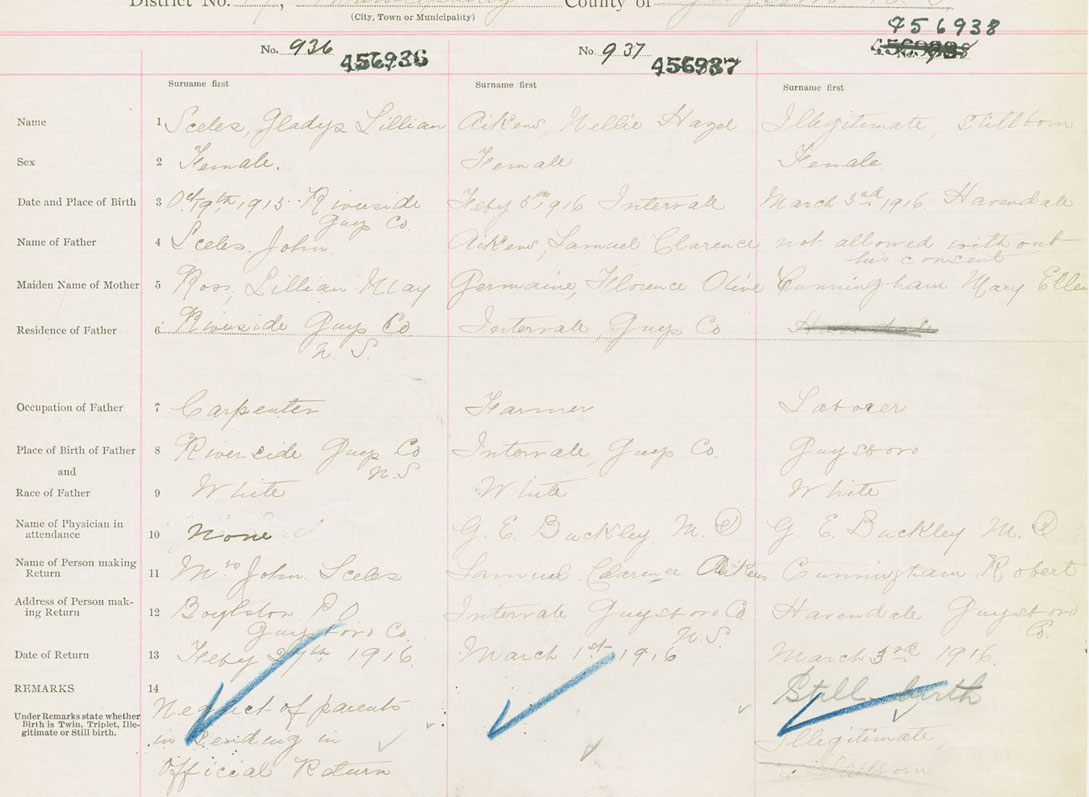 District No.
County of
(City, Town or Municipality)
456938
No. 936 456936
No. 937 456937
Surname first
Surname first
Surname first
Name 1 Sceles, Gladys Lillian
Aikens, Nellie Hazel
Illegitimate, Stillborn
Sex 2 Female.
Female
Female
Date and Place of Birth 3 Oct 9th, 1915. Riverside
Guys Co.
Feby 5th, 1916 Intervale
March 3rd 1916. Havendale
Name of Father 4 Sceles, John.
Aikens, Samuel Clarence
not allowed with out
his consent
Maiden Name of Mother 5 Ross, Lillian May
Germaine, Florence Olive
Cunningham Mary Ellen
Residence of Father 6 Riverside Guys Co
N. S.
Intervale, Guys Co
Occupation of Father 7 Carpenter
Farmer
Laborer
Place of Birth of Father 8 Riverside Guys Co
N. S
Intervale, Guys Co.
Guysboro
and
Race of Father 9 White
White
White
Name of Physician in
attendance 10 None
G. E. Buckley M. D
G. E. Buckley M. D
Name of Person making
Return 11 Mrs John Sceles
Samuel Clarence Aikens
Cunningham Robert
Address of Person mak-
ing Return 12 Boylston P. O
Guysboro Co.
Intervale Guysboro Co
N. S
Havendale Guysboro
Co.
Date of Return 13 Feby 27th, 1916.
March 1st 1916
March 3rd 1916.
REMARKS 14
Under Remarks state whether
Birth is Twin, Triplet, Ille-
gitimate or Still birth.
Neglect of parents
in sending in
Official Return
Still birth
Illegitimate
Stillborn